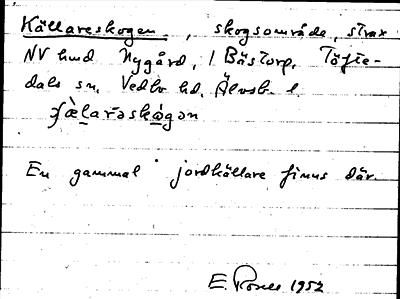 Källareskogen, skogsområde, strax
NV hmd Nygård, 1 Båstorp, Töfte-
dals sn. Vedbo hd, Älvsb. l
En gammal jordkällare finns där.
E. Rosell 1952